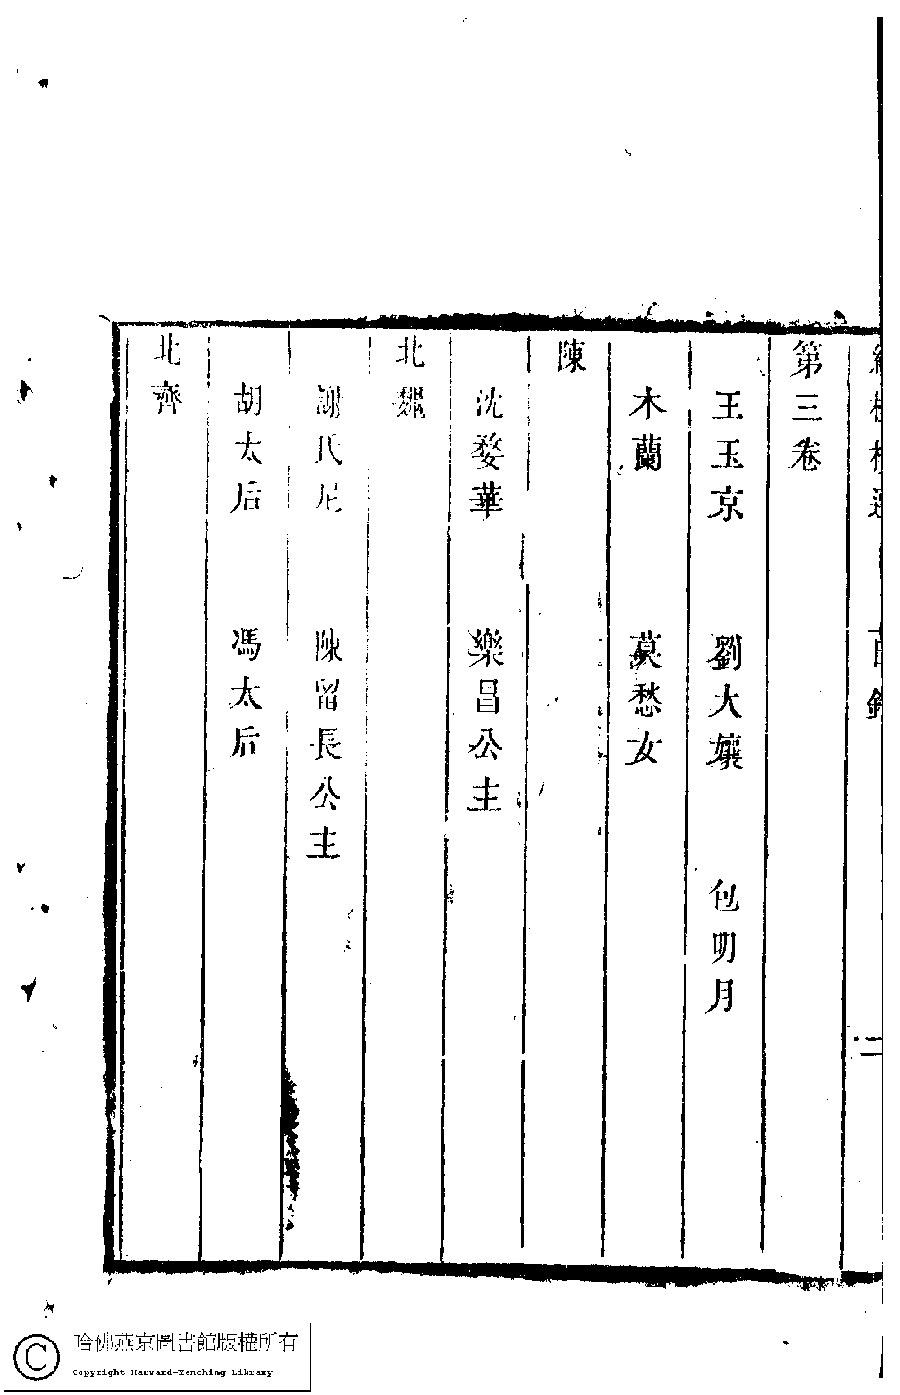 第三卷
王玉京　劉大孃　包明月
木蘭　莫愁女
陳
沈婺華　樂昌公主
北魏
謝氏尼　陳留長公主
胡太后　馮太后
北齊
哈佛燕京圖書館版權所有
Copyright Harvard-Yenching Library